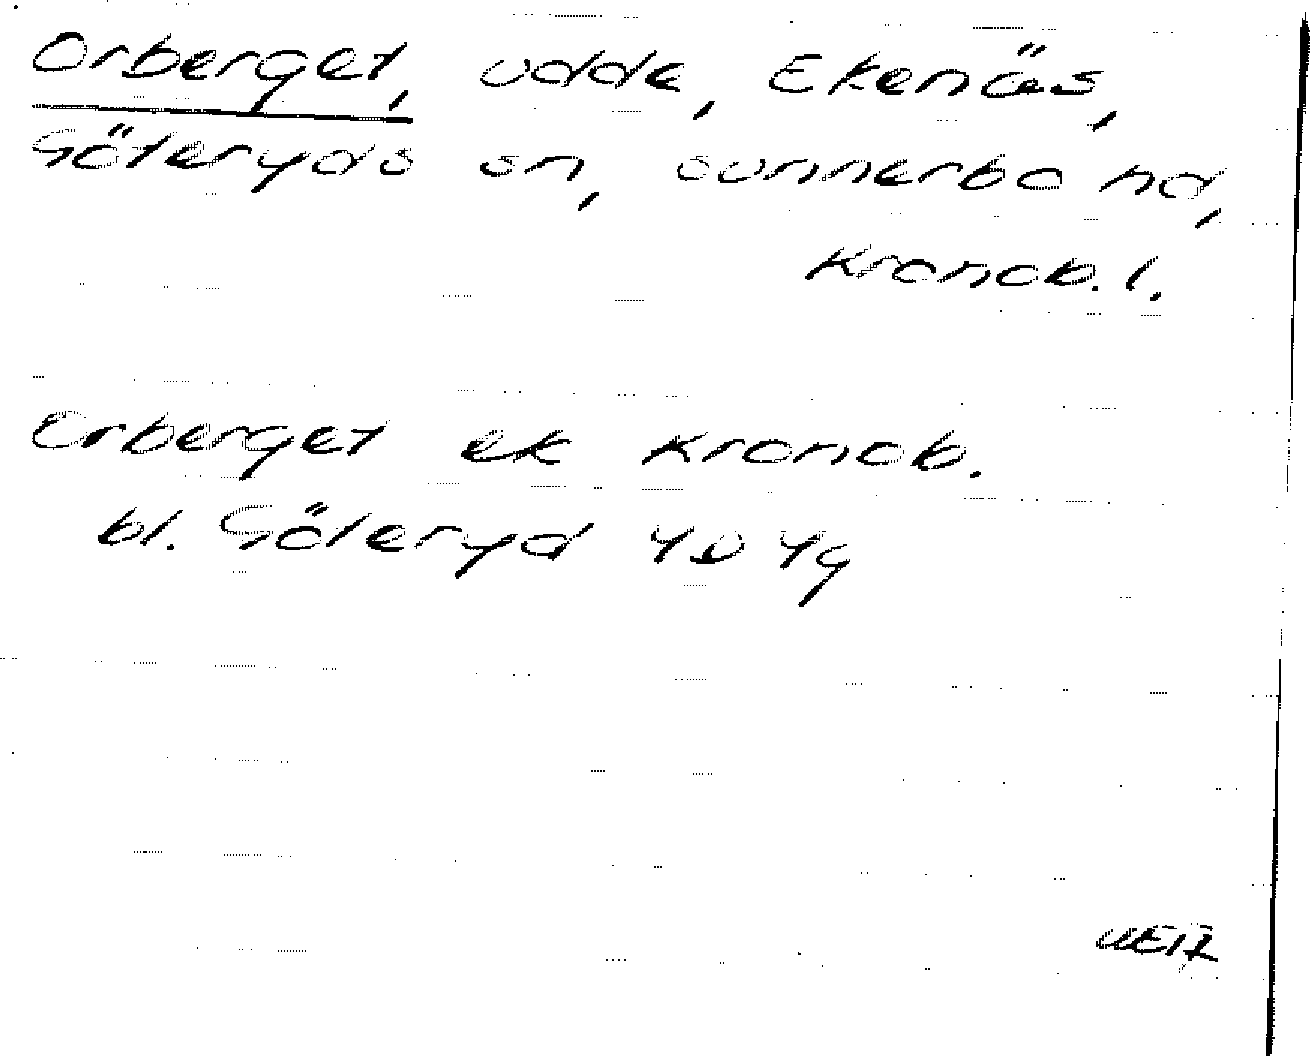 Orberget, udde, Ekenäs,
Göteryds sn, sunnerbo hd,
Kronob. l.
Orberget ek Kronob.
bl. Göteryd 4D 4g